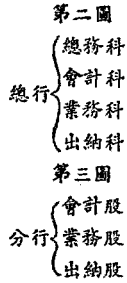 第二圖
總行
總務科
會計科
業務科
出納科
第三圖
分行
會計股
業務股
出納股